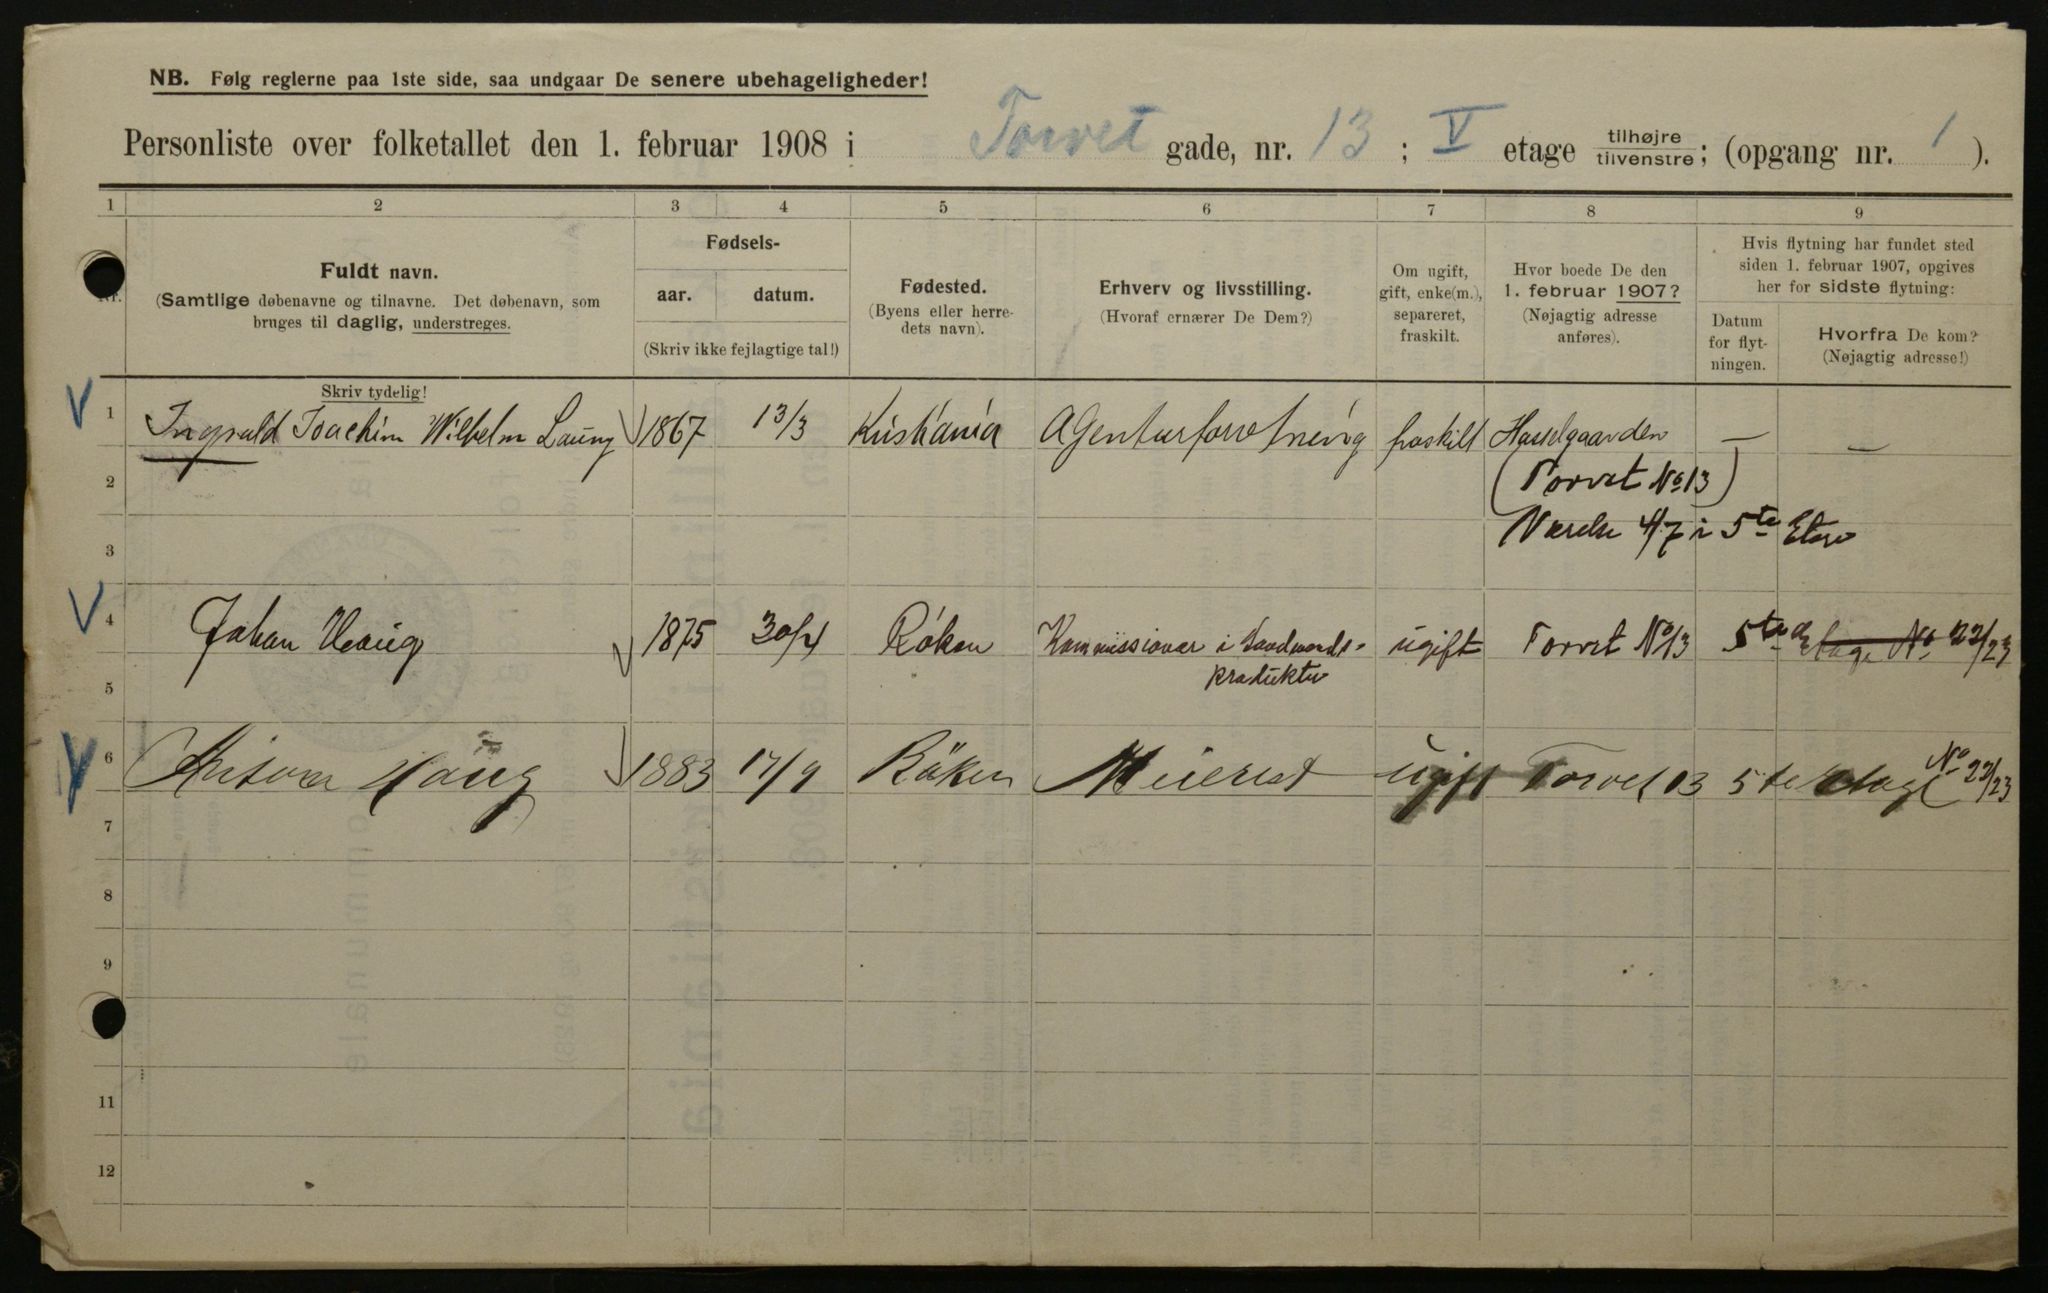 NB. Følg reglerne paa 1ste side, saa undgaar De senere ubehageligheder!
Personliste over folketallet den 1. februar 1908 i Torvet gade, nr. 13 ; V etage tilhøjre tilvenstre; (opgang nr. 1 ).
1 2 3 4 5 6 7 8 9
Nr.
Fuldt navn.
(Samtlige døbenavne og tilnavne. Det døbenavn, som
bruges til daglig, understreges.
Skriv tydelig!
Fødsels-
aar. datum.
(Skriv ikke fejlagtige tal!)
Fødested.
(Byens eller herre-
dets navn).
Erhverv og livsstilling.
(Hvoraf ernærer De Dem?)
Om ugift,
gift, enke(m.),
separeret,
fraskilt.
Hvor boede De den
1. februar 1907?
(Nøjagtig adresse
anføres).
Hvis flytning har fundet sted
siden 1. februar 1907, opgives
her for sidste flytning:
Datum
for flyt-
ningen.
Hvorfra De kom?
(Nøjagtig adresse!)
1 Ingvald Joachim Wilhelm 1867 13/3 Kristiania Agenturforretning fraskilt Hasselgaarden — —
2 (Torvet No 13)
3 Værelse 4/7 i 5te Etage
4 Johan Haug 1875 30/4 Röken Kommissionær i Landmands- ugift Torvet No 13 5te Etage No 22/23
produkter
5
6 Haug 1883 17/9 Röken Meierist ugift Torvet 13 5te etage No 22/23
7
8
9
11
12